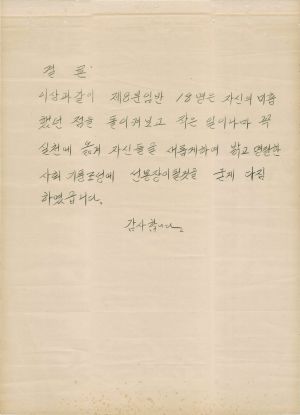 결론
이상과 같이 제8분임반 18명은 자신의 미흡
했던 점을 돌이켜보고 작은 일이나마 꼭
실천에 옮겨 자신들을 새롭게하여 밝고 명랑한
사회 기풍조성에 선봉장이될것을 굳게 다짐
하였읍니다.
감사합니다.